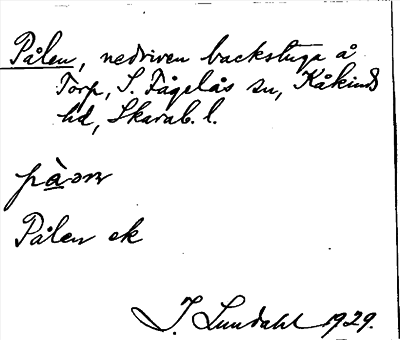 Pålen, nedriven backstuga å
Torp, S. Fågelås sn, Kåkinds
hd, Skarab. l.
Pålen ek
J. Lundahl 1929.